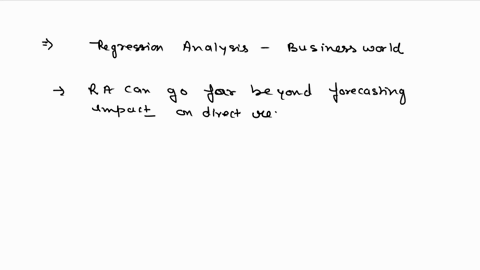 ⇒ Regression Analysis - Business world
→ RA can go far beyond forecasting
impact on direct